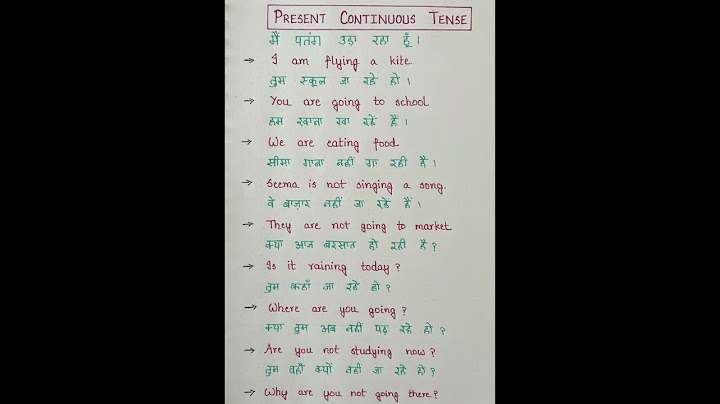 PRESENT CONTINUOUS TENSE
मैं पतंग उड़ा रहा हूँ।
→ I am flying a kite.
तुम स्कूल जा रहे हो।
→ You are going to school
हम खाना खा रहें हैं।
→ We are eating food.
सीमा गाना नहीं गा रही है।
→ Seema is not singing a song.
वे बाज़ार नहीं जा रहें हैं।
→ They are not going to market.
क्या आज बरसात हो रही है?
→ Is it raining today?
तुम कहाँ जा रहे हो?
→ Where are you going?
क्या तुम अब नहीं पढ़ रहे हो?
→ Are you not studying now?
तुम वहाँ क्यों नहीं जा रहे हो?
→ Why are you not going there?